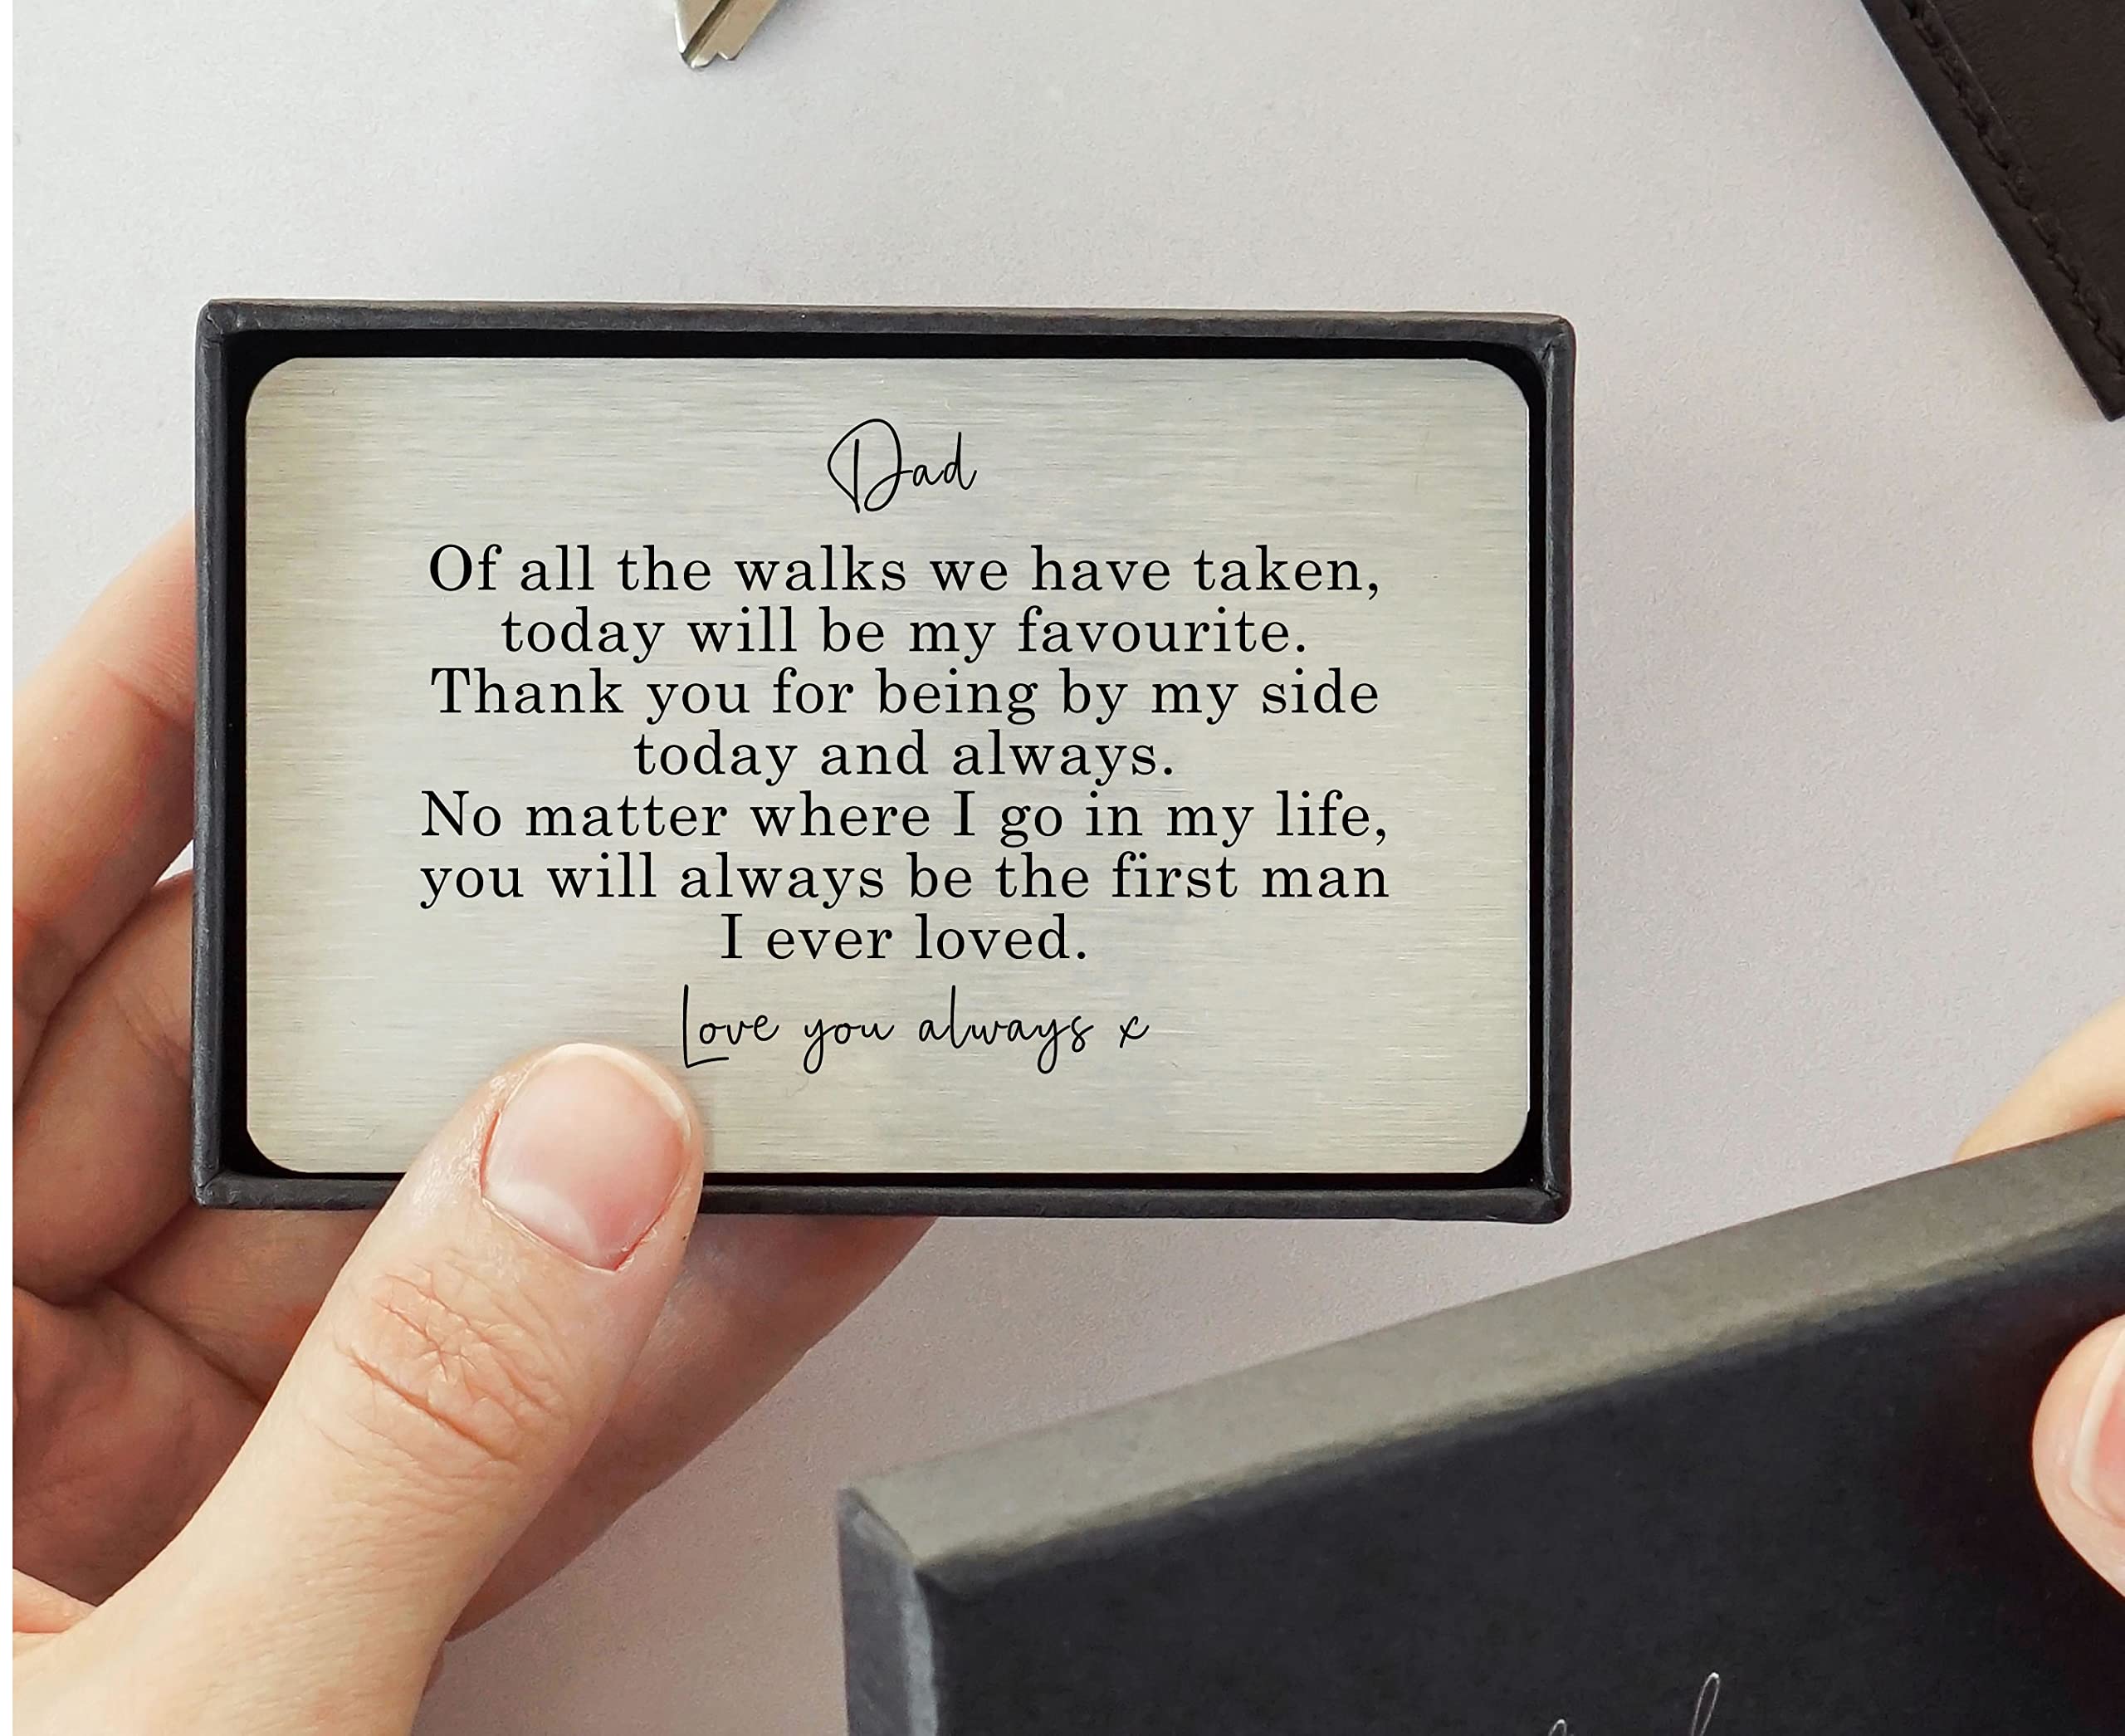 Dad
Of all the walks we have taken,
today will be my favourite.
Thank you for being by my side
today and always.
No matter where I go in my life,
you will always be the first man
I ever loved.
Love you always x